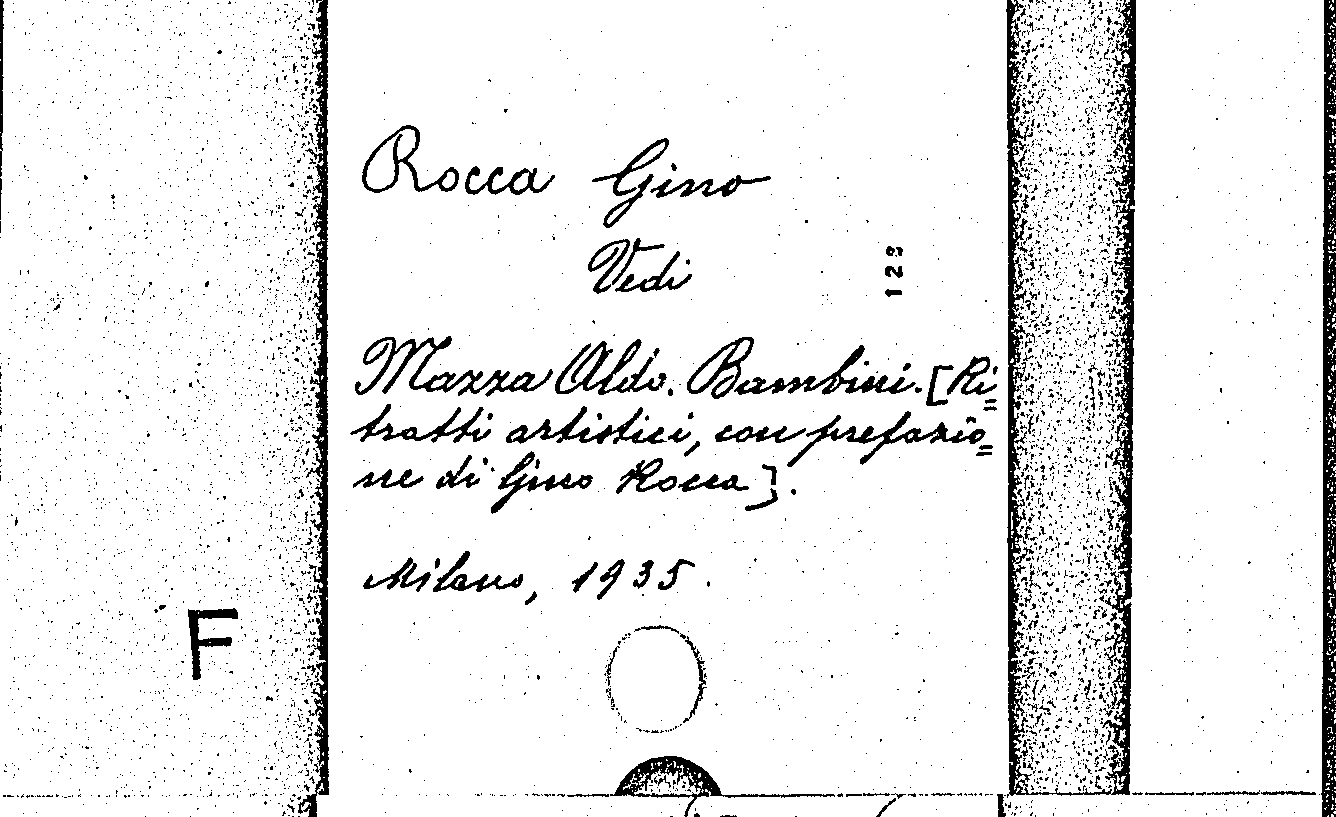 Rocca Gino
Vedi
123
Mazza Aldo. Bambini. [Ri=
tratti artistici, con prefazio=
ne di Gino Rocca].
Milano, 1935.
F